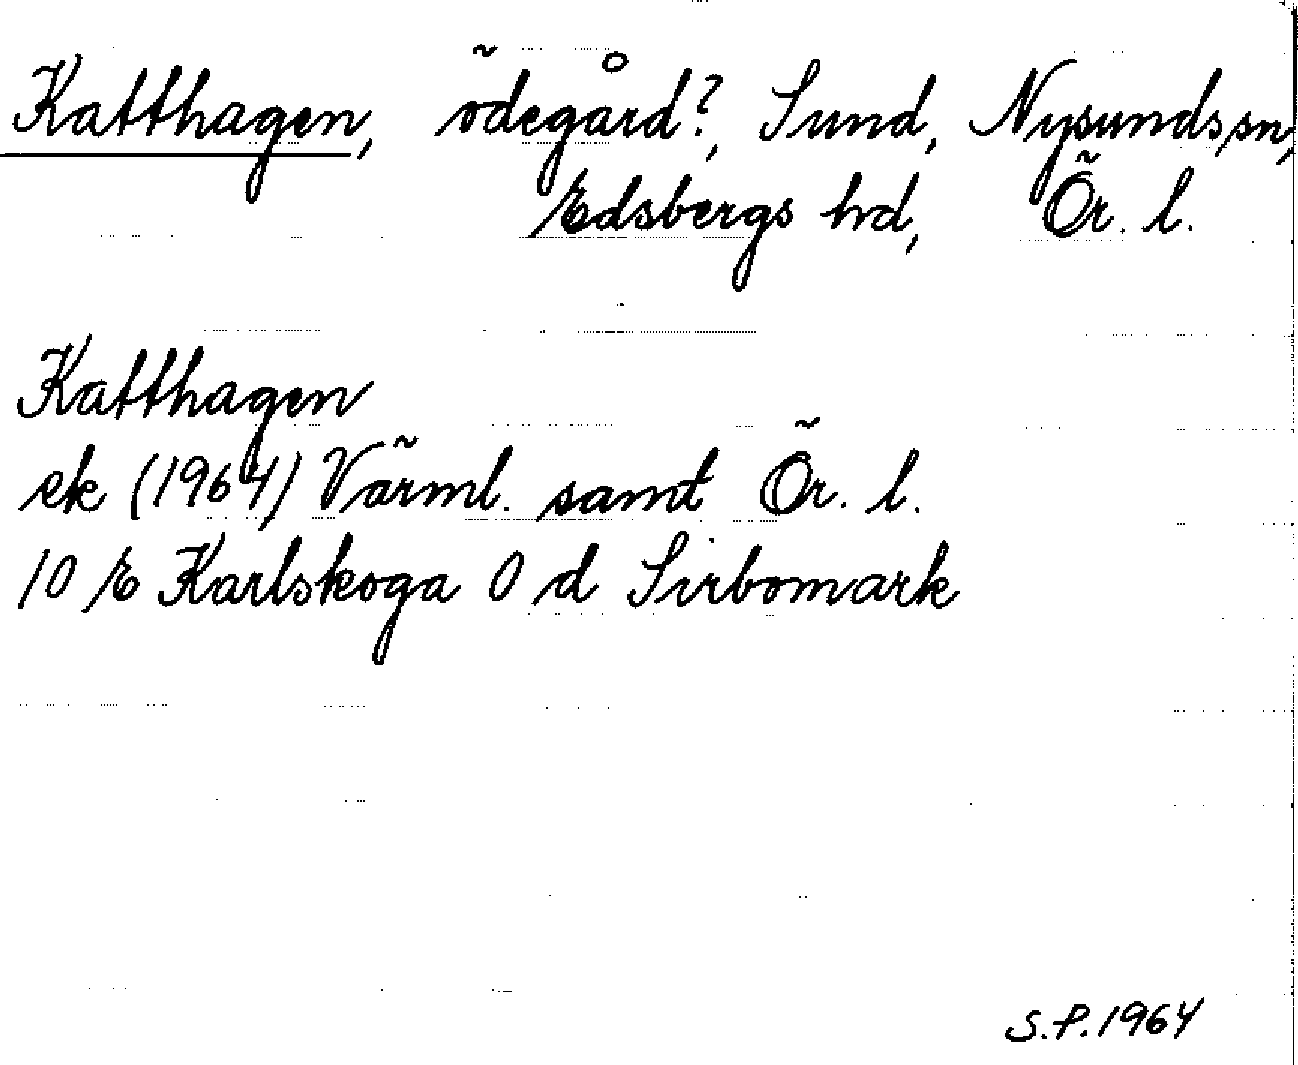 Katthagen, ödegård?, Sund, Nysunds sn,
Edsbergs hd, Ör. l.
Katthagen
ek (1964) Värml. samt Ör. l.
10 E Karlskoga 0 d Sirbomark
S.P. 1964